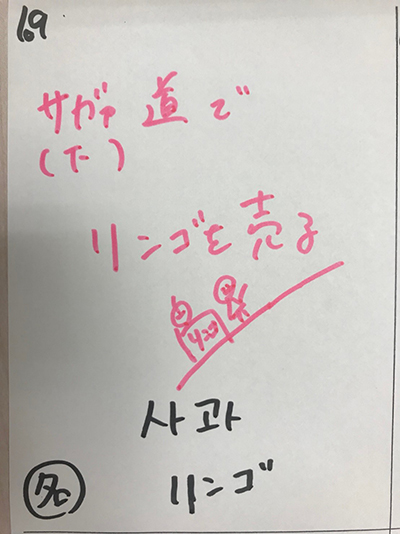 169
サガァ 道で
(下)
リンゴを売る
リンゴ
사과
名 リンゴ